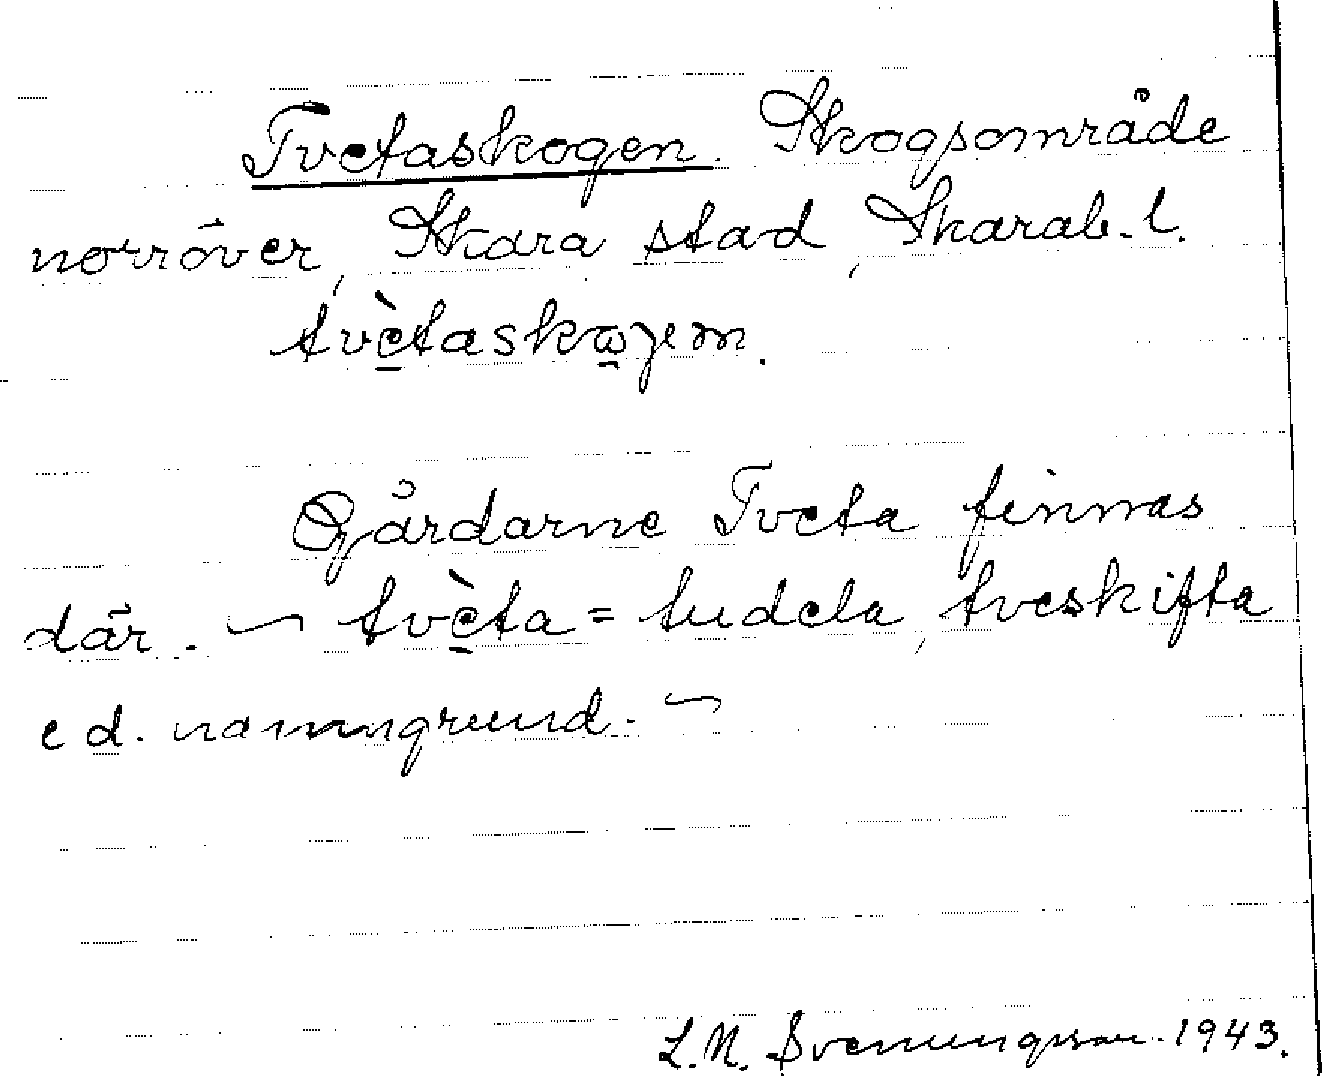 Tvetaskogen. Skogsområde
norröver, Skara stad, Skarab. l.
tvètaskωγem.
Gårdarne Tveta finnas
där. ~ tvèta = tudela, tveskifta
e d. namngrund. ~
L. N. Svenungsson. 1943.